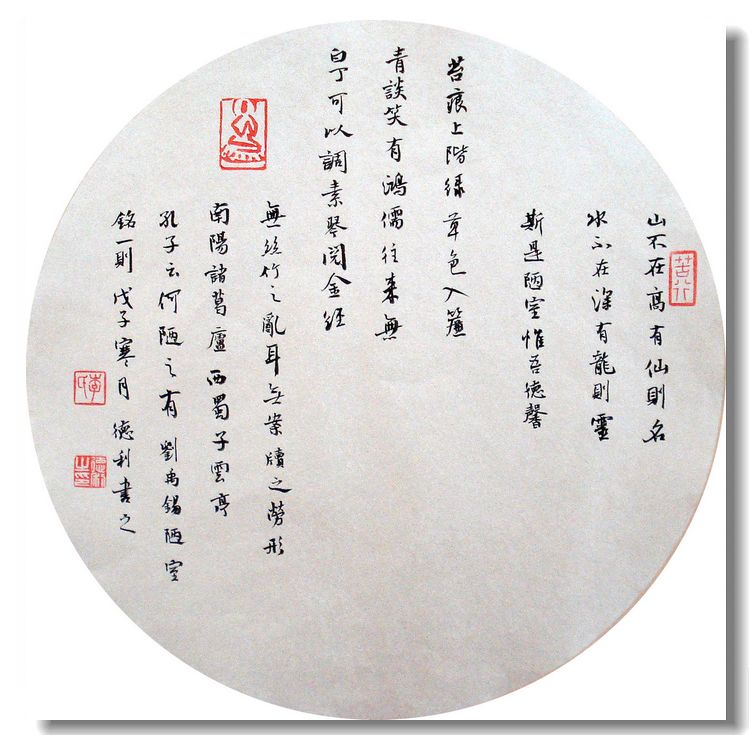 山不在高有仙則名
水不在深有龍則靈
斯是陋室惟吾德馨
苔痕上階綠草色入簾
青談笑有鴻儒往來無
白丁可以調素琴閱金經
無絲竹之亂耳無案牘之勞形
南陽諸葛廬西蜀子雲亭
孔子云何陋之有劉禹錫陋室
銘一則戊子寒月德利書之
苦行
李氏